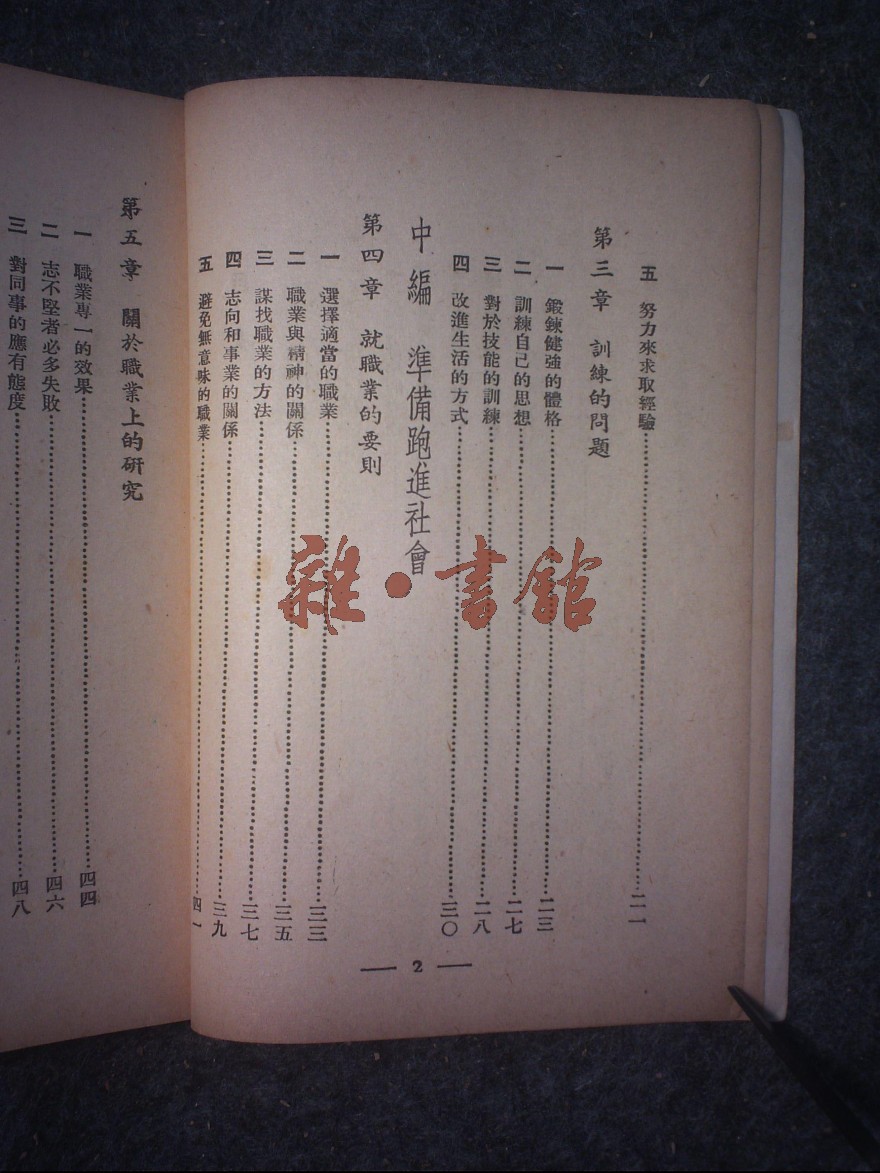 五 努力來求取經驗……二一
第三章 訓練的問題
一 鍛鍊健強的體格……二三
二 訓練自己的思想……二七
三 對於技能的訓練……二八
四 改進生活的方式……三〇
中編 準備跑進社會
第四章 就職業的要則
一 選擇適當的職業……三三
二 職業與精神的關係……三五
三 謀找職業的方法……三七
四 志向和事業的關係……三九
五 避免無意味的職業……四一
2
第五章 關於職業上的研究
一 職業專一的效果……四四
二 志不堅者必多失敗……四六
三 對同事的應有態度……四八
雜·書館